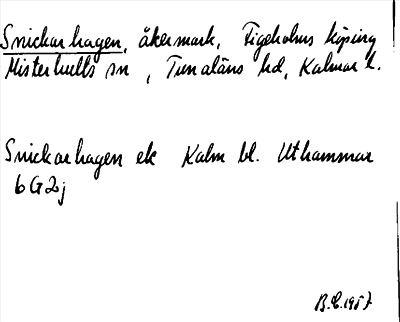 Snickarhagen, åkermark, Figeholms köping
Misterhults sn, Tunaläns hd, Kalmar l.
Snickarhagen ek Kalm bl. Uthammar
6G2j
B.E. 1957